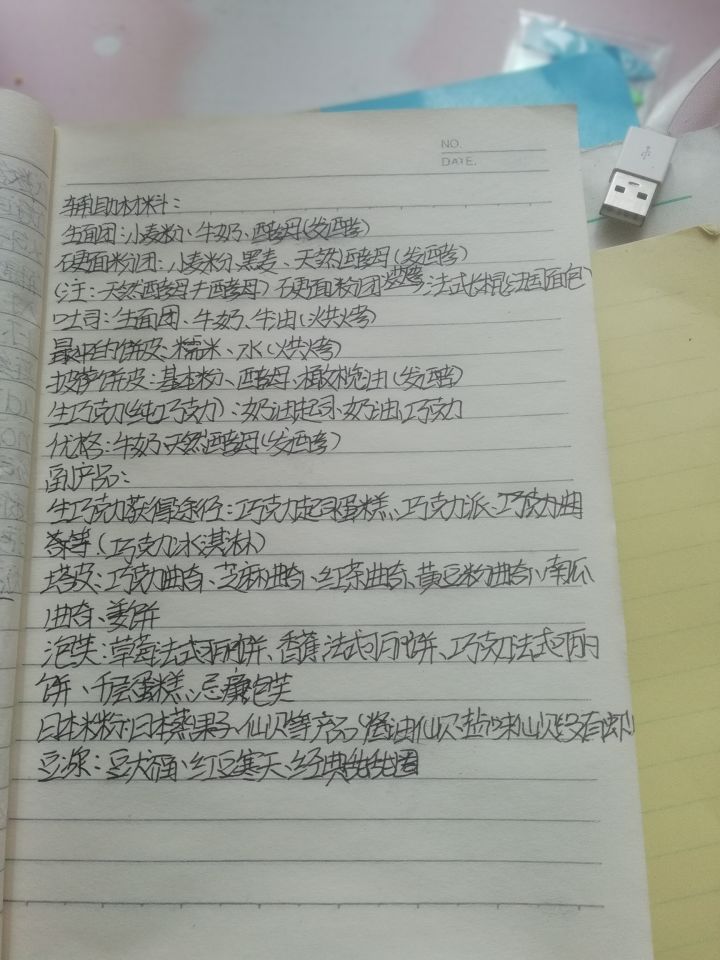 NO.
DATE.
辅助材料:
生面团:小麦粉、牛奶、酵母(发酵)
硬面粉团:小麦粉、黑麦、天然酵母(发酵)
(注:天然酵母≠酵母)硬面粉团 法式长棍(法国面包)
吐司:生面团、牛奶、牛油(烘烤)
最中的饼皮:糯米、水(烘烤)
披萨饼皮:基本粉、酵母、橄榄油(发酵)
生巧克力(纯巧克力):奶油起司、奶油、巧克力
优格:牛奶、天然酵母(发酵)
副产品:
生巧克力获得途径:巧克力起司蛋糕、巧克力派、巧克力曲
奇等(巧克力冰淇淋)
塔皮:巧克力曲奇、芝麻曲奇、红茶曲奇、黄豆粉曲奇、南瓜
曲奇、姜饼
泡芙:草莓法式可丽饼、香蕉法式可丽饼、巧克力法式可丽
饼、千层蛋糕、泡芙
日本米粉:日本蒸果子、仙贝等产品(酱油仙贝、盐味仙贝没有
豆浆:豆大福、红豆寒天、经典甜甜圈